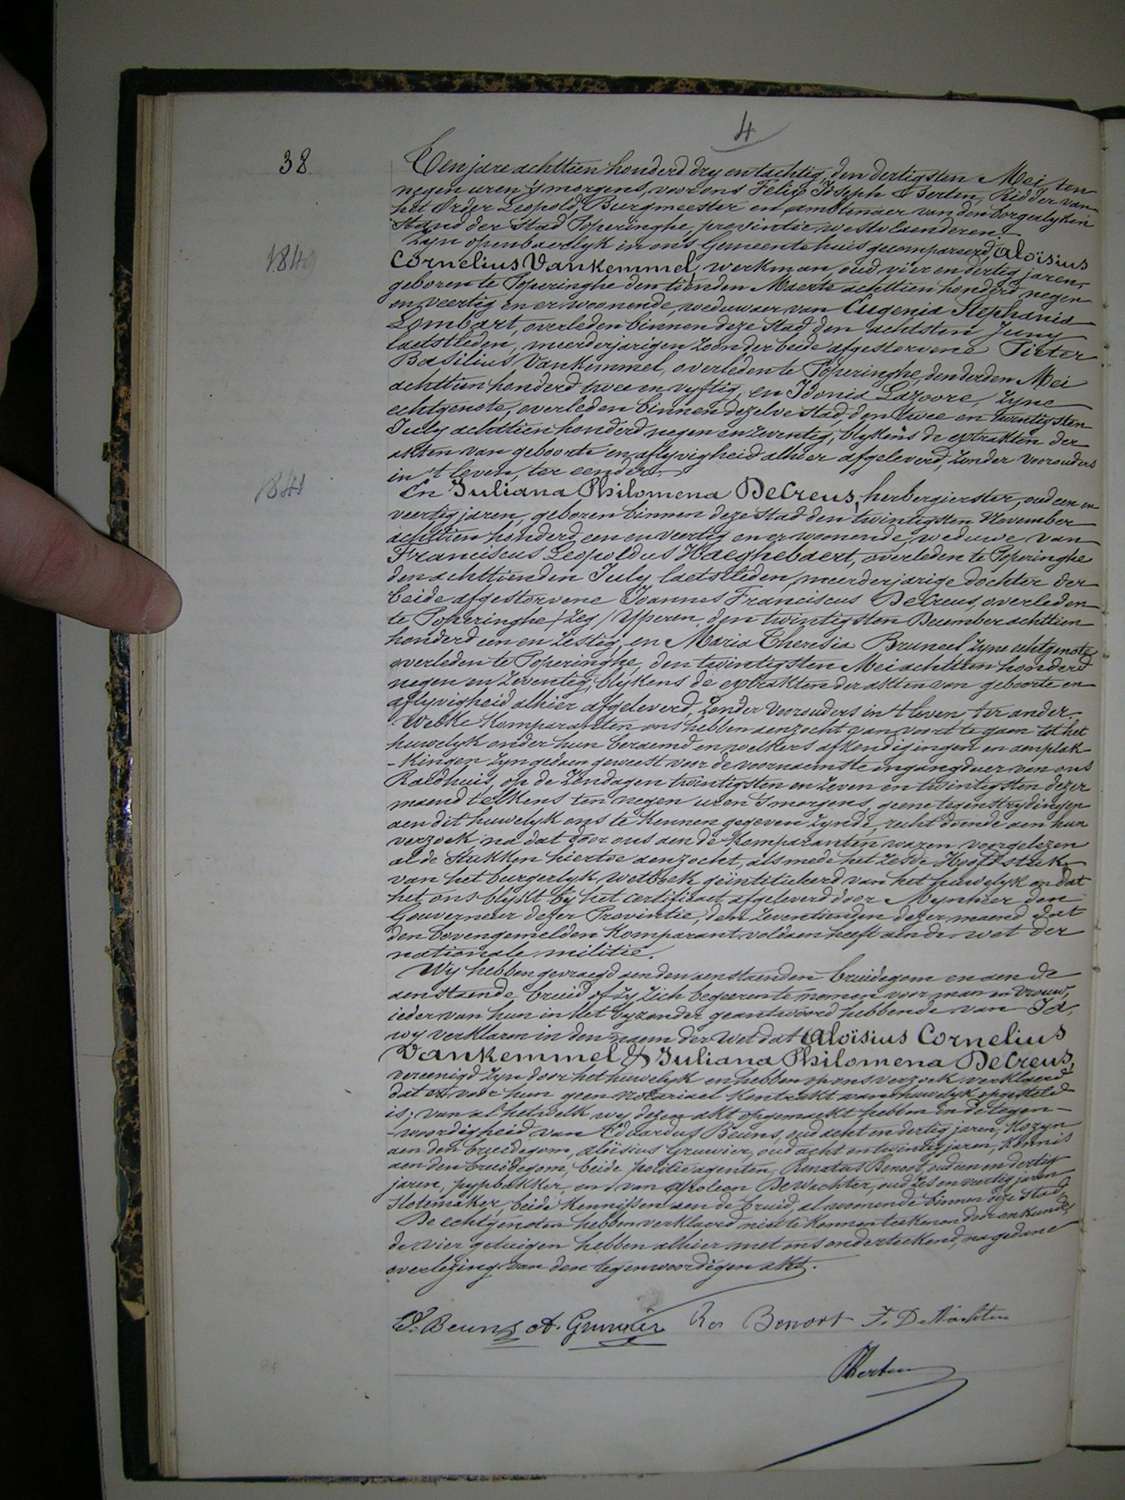 4
38
Ten jare achttien honderd dry en tachtig, den dertigsten Mei, ten
negen uren 's morgens, voor ons Felix Joseph Berten, Ridder van
het Order Leopold Burgmeester en ambtenaer van den borgerlyken
Stand der Stad Poperinghe, provintie westvlaenderen.
Zyn openbaerlyk in ons Gemeentehuis gecompareerd, Aloïsius
1849
Cornelius Vankemmel, werkman, oud vier en dertig jaren,
geboren te Poperinghe den tienden Maerte achttien honderd negen
en veertig en er woonende, weduwaer van Eugenia Stephania
Lombart, overleden binnen deze stad den achtsten Juny
laetstleden, meerderjarigen zoon der beide afgestorvene Pieter
Basilius Vankemmel, overleden te Poperinghe, den derden Mei
achttien honderd twee en vyftig, en Idonia Lazoore, zyne
echtgenote, overleden binnen dezelve stad den twee en twintigsten
July achttien honderd negen en zeventig, blykens de extrakten der
akten van geboorte en aflyvigheid alhier afgeleverd, zonder voorouders
in 't leven, ter eender.
1841
En Juliana Philomena DeCreus, herbergierster, oud een en
veertig jaren, geboren binnen deze stad den twintigsten November
achttien honderd een en veertig en er woonende, weduwe van
Franciscus Leopoldus Haeghebaert, overleden te Poperinghe
den achttienden July laetstleden, meerderjarige dochter der
beide afgestorvene Joannes Franciscus DeCreus, overleden
te Poperinghe / zeg / Ypperen, den twintigsten December achttien
honderd een en zestig, en Maria Theresia Bruneel zyne echtgenote,
overleden te Poperinghe, den twintigsten Mei achttien honderd
negen en zeventig, blykens de extrakten der akten van geboorte en
aflyvigheid alhier afgeleverd, zonder voorouders in 't leven, ter ander.
Welke Komparanten ons hebben aenzocht van voort te gaen tot het
huwelyk onder hun beraemd en welkers afkondigingen en aenplak-
-kingen zyn gedaen geweest voor de voornaemste ingangdeur van ons
Raedhuis, op de Zondagen twintigsten en zeven en twintigsten dezer
maend telkens ten negen uren 's morgens, geene tegenstrydingen
aen dit huwelyk ons te kennen gegeven zynde, recht doende aen hun
verzoek na dat door ons aen de Komparanten waren voorgelezen
al de Stukken hiertoe aenzocht, als mede het zesde Hoofdstuk
van het burgerlyk wetboek geïntituleerd van het huwelyk en dat
het ons blykt by het certificaet afgeleverd door Mynheer den
Gouverneur dezer Provintie, den zeventienden dezer maend dat
den bovengemelden Komparant voldaen heeft aen de wet der
nationale militie.
Wy hebben gevraegd aen den aenstaenden bruidegom en aen de
aenstaende bruid of zy zich begeeren te nemen voor man en vrouw,
ieder van hun in het byzonder geantwoord hebbende van Ja,
wy verklaren in den naem der Wet dat Aloïsius Cornelius
Vankemmel & Juliana Philomena DeCreus,
vereenigd zyn door het huwelyk en hebben op ons verzoek verklaerd
dat er voor hun geen notariael kontrakt van huwelyk opgesteld
is; van al hetwelk wy dezen akt opgemaekt hebben in de tegen-
-woordigheid van Eduardus Beuns, oud acht en dertig jaren, Kozyn
aen den bruidegom, Aloïsius Gruwier, oud acht en twintig jaren, Kennis
aen den bruidegom, beide politieagenten, Renatus Benoot, oud een en dertig
jaren, pypbekker, en van apoleon DeWachter, oud zes en veertig jaren
Slotemaker, beide Kennissen aen de bruid, al woonende binnen deze Stad.
De echtgenoten hebben verklaerd niet te konnen teekenen door onkunde,
de vier getuigen hebben alhier met ons onderteekend, na gedane
overlezing van den tegenwoordigen akt.
E. Beuns A. Gruwier Ren Benoot F. DeWachter
Berten